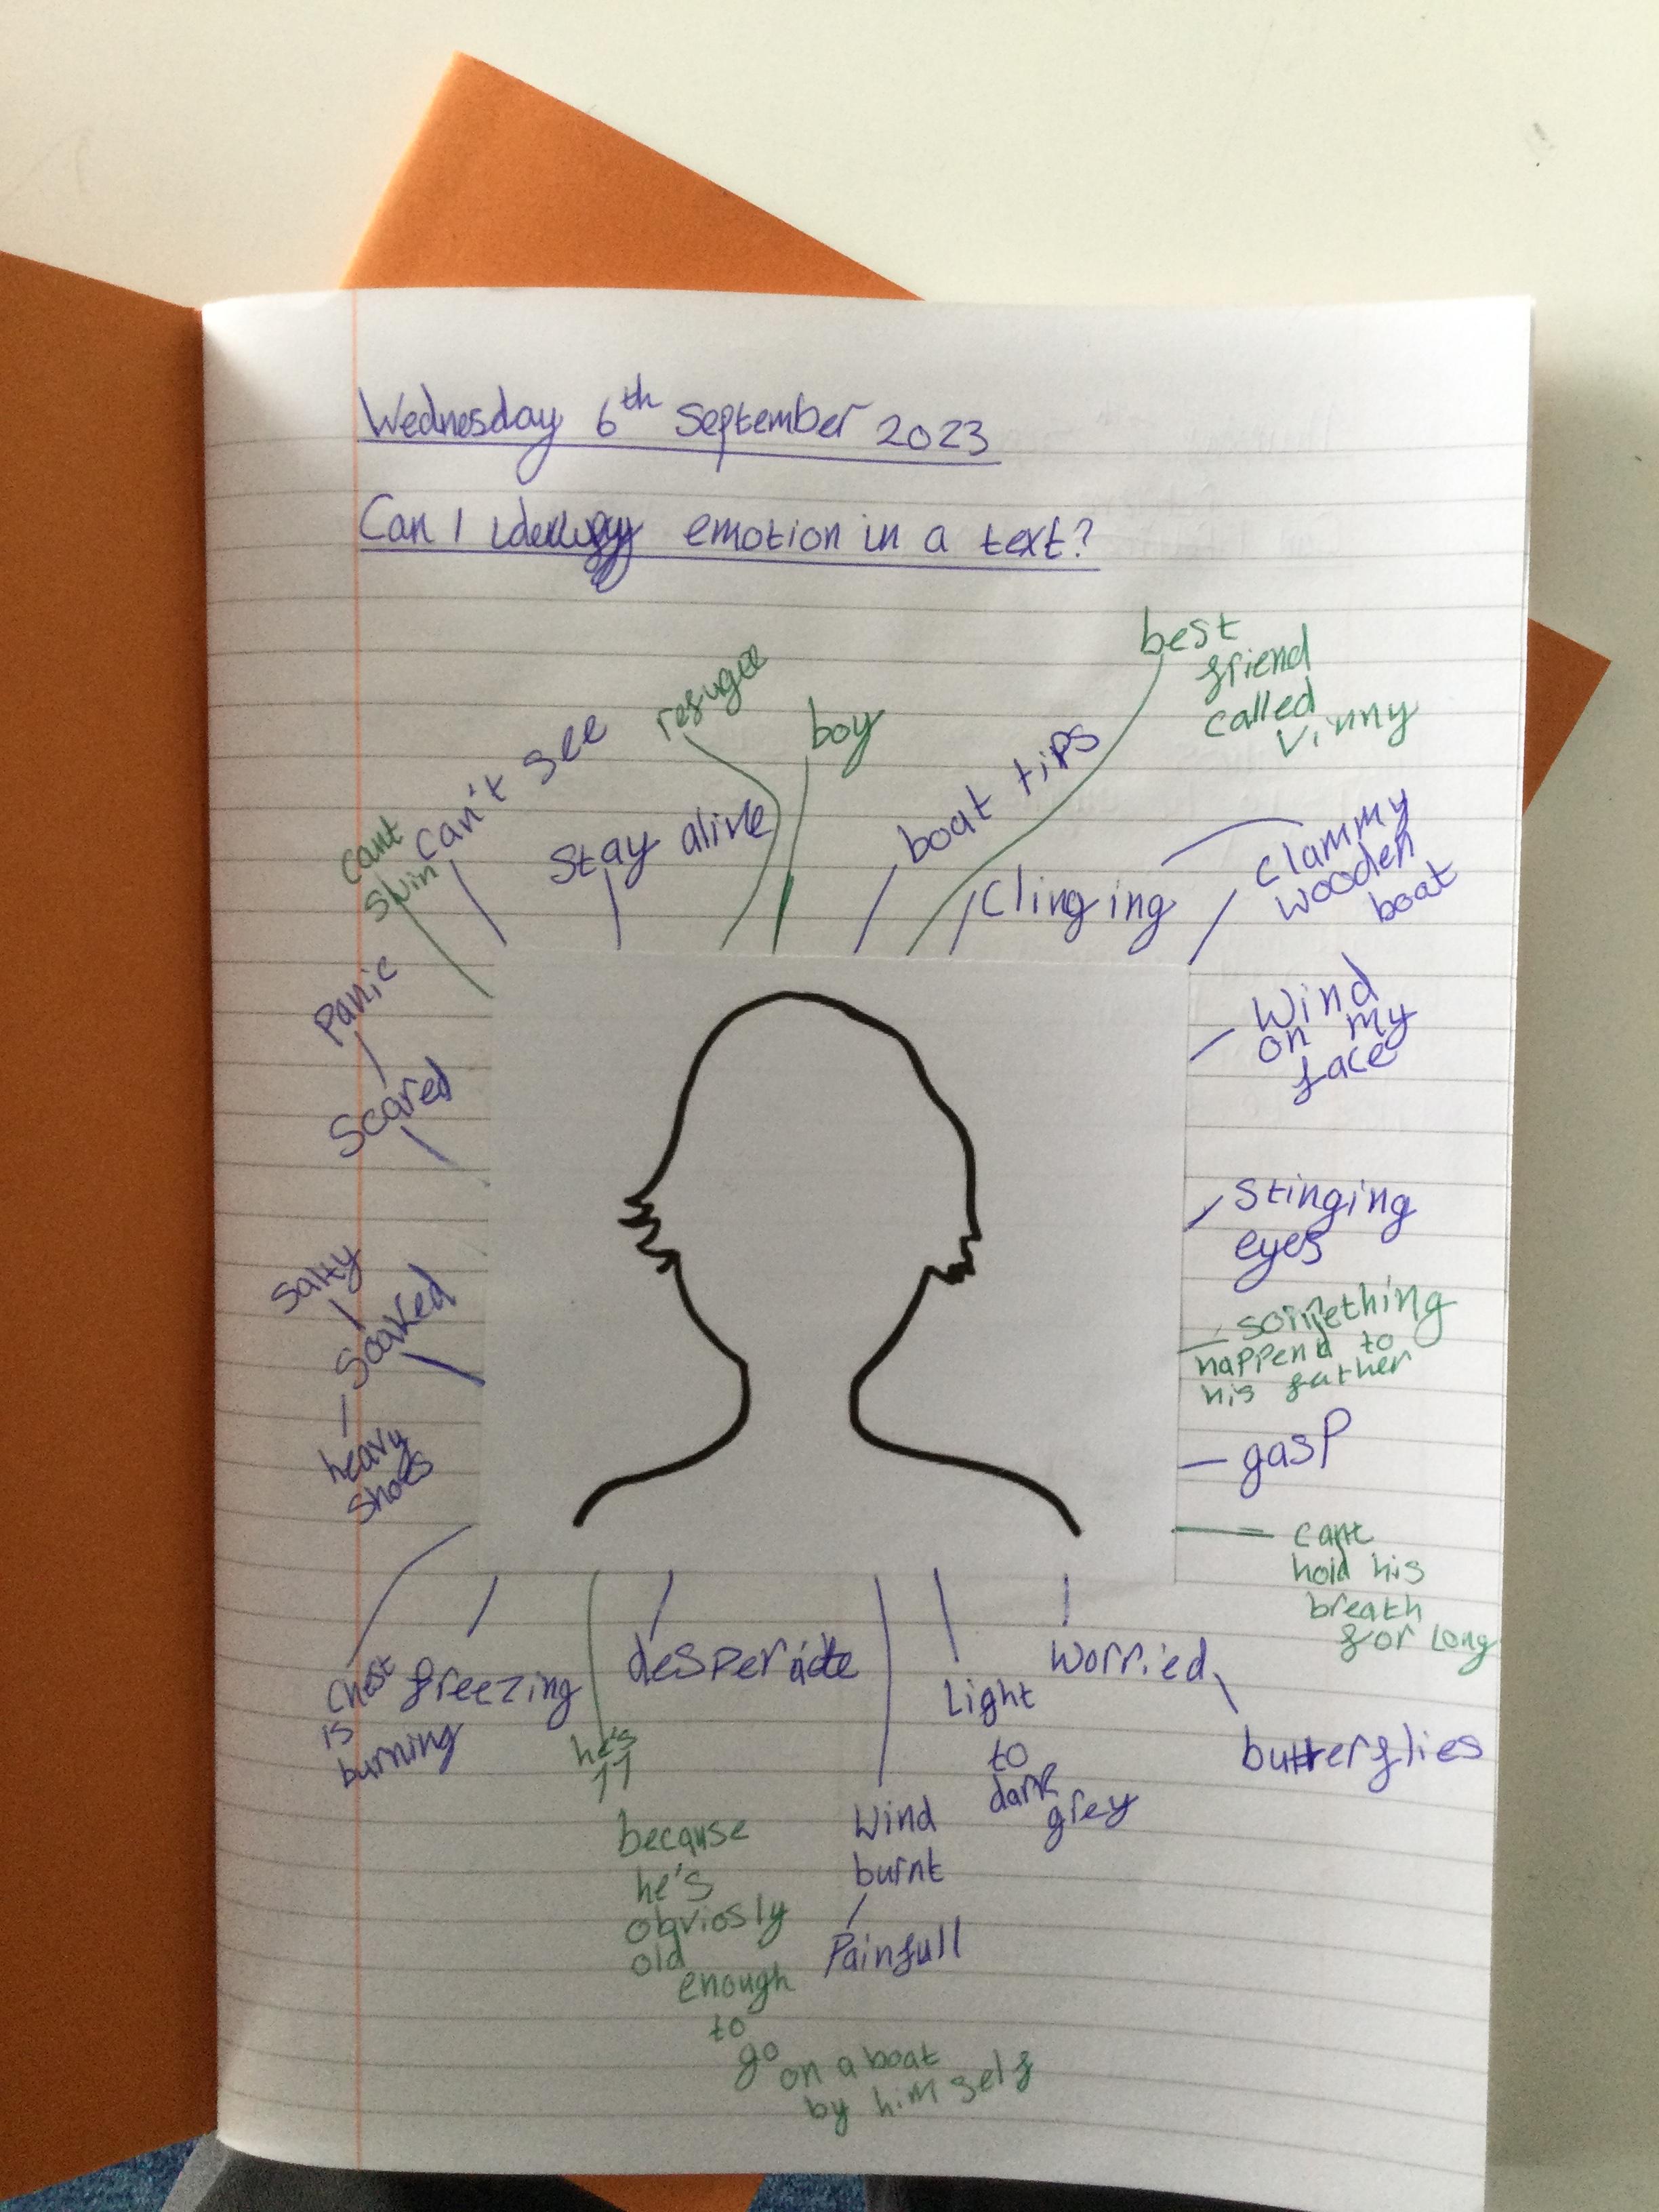 Wednesday 6th September 2023
Can I identify emotion in a text?
best
friend
called
Vinny
refugee
boy
can't see
boat tips
Stay alive
cant
swim
Clinging
clammy
wooden
boat
Panic
Scared
Wind
on my
face
Stinging
eyes
Salty
Soaked
heavy
shoes
something
happend to
his father
gasp
cant
hold his
breath
for long
chest
is
burning
freezing
he's
11
because
he's
obviosly
old
enough
to
go
on a boat
by him self
desperate
Wind
burnt
Painfull
Light
to
dark
grey
Worried
butterflies